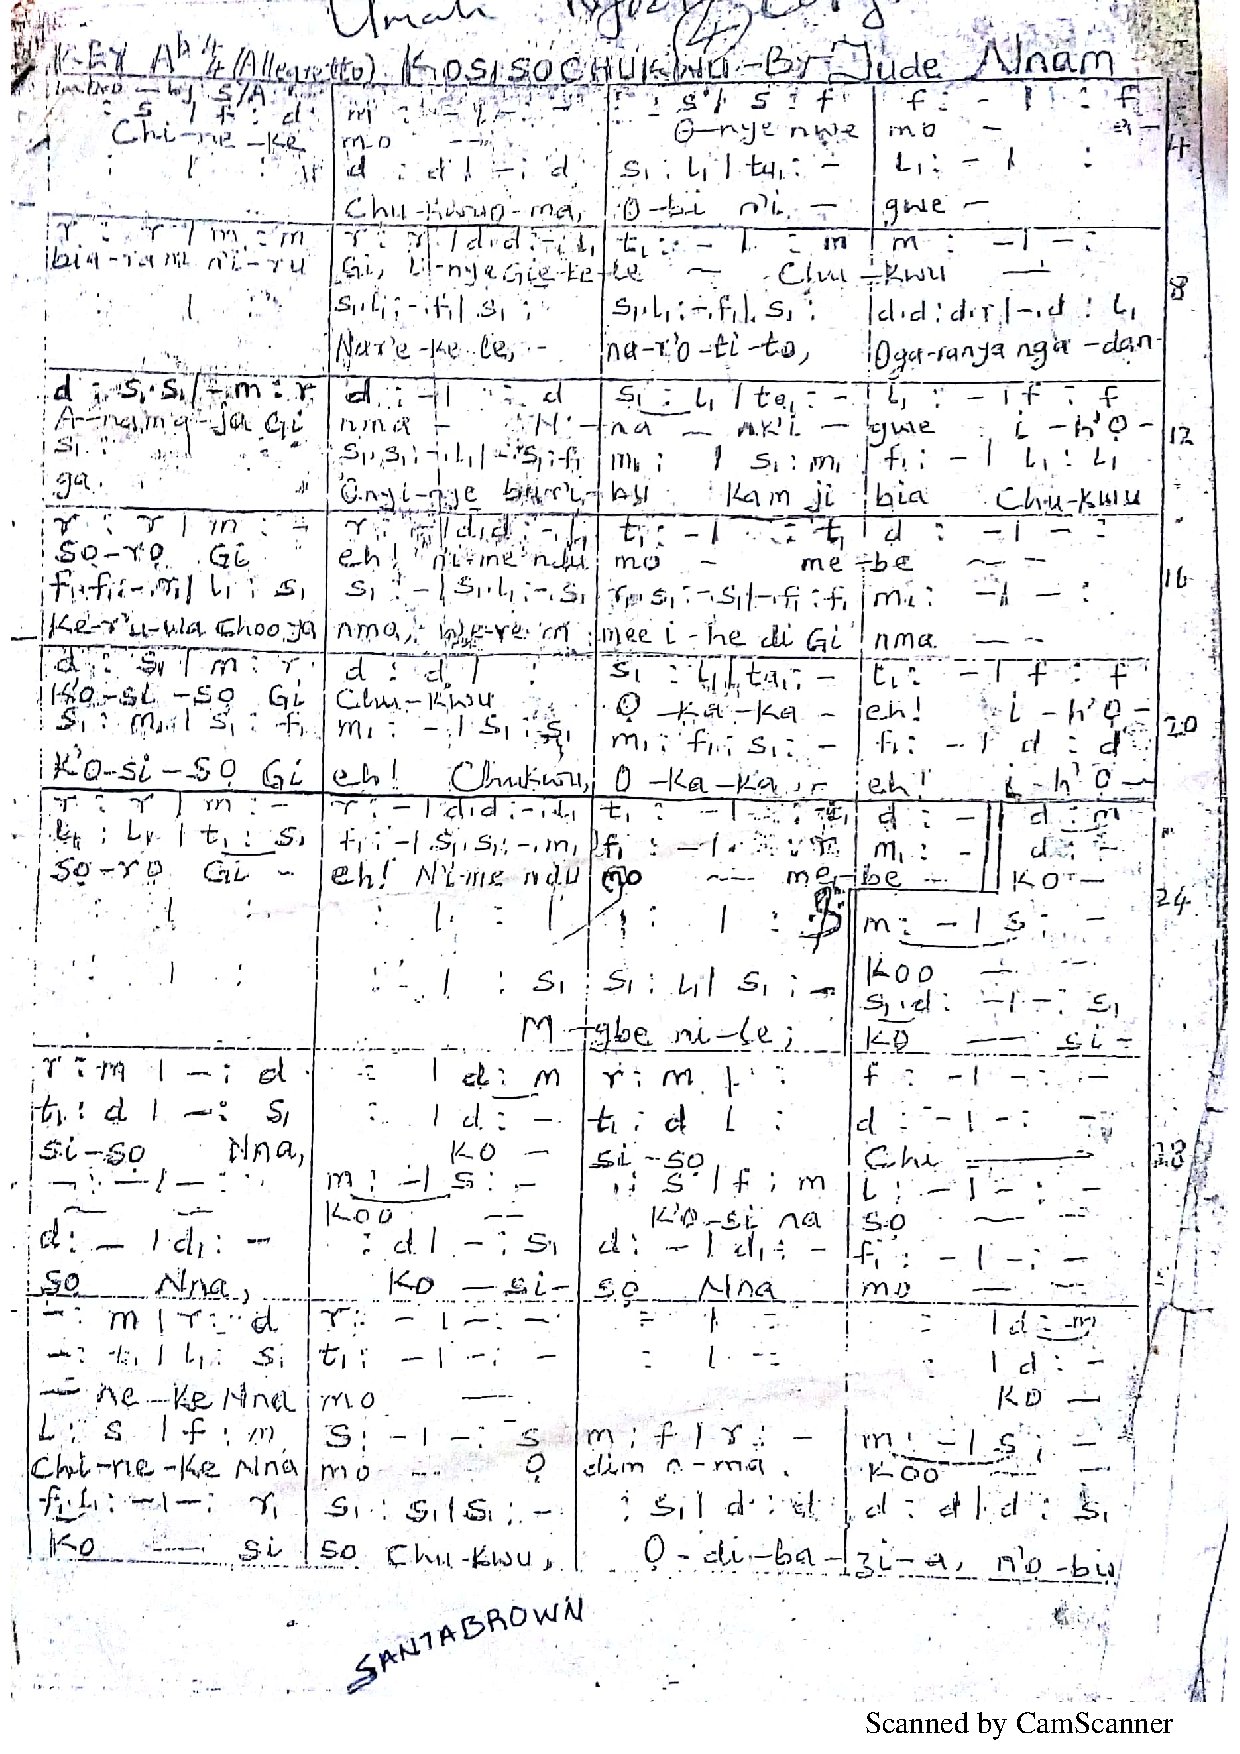 Umah
(4)
KEY Ab 4/4 (Allegretto) KOSISOCHUKWU - By Jude Nnam
Intro - by S/A
: s | f : d | m : - | - : - | : s | s : f | f : - | : f
Chi-ne-ke mo — O-nye nwe mo —
: | : d : d | - : d s₁ : l₁ | ta₁ : - l₁ : - | :
Chu-kwuo-ma, O-bi ni - gwe - 4
r : r | m : m r : r | d.d : -.l₁ t₁ : - | : m m : - | - :
bia-ram ni-ru Gi, Ii-nye Gi e-ke-le — Chu-kwu —
: | : s₁.l₁ : -.f₁ | s₁ : s₁.l₁ : -.f₁ | s₁ : d.d : d.r | -.d : l₁ 8
Nar'e-ke le, - na-r'o-ti-to, Oga-ranya nga-dan-
d : s₁.s₁ | -.m : r d : - | : d s₁ : l₁ | ta₁ : - l₁ : - | f : f
A-nama-ja Gi nma - N-na - nk'i - gwe i-h'Ọ- 12
s₁ : s₁.s₁ : -.l₁ | -.s₁ : f₁ m₁ : | s₁ : m₁ f₁ : - | l₁ : l₁
ga. Onyi-nye buru-bu Kam ji bia Chu-kwu
r : r | m : - r : - | d.d : -.l₁ t₁ : - | : t₁ d : - | - :
Sọ-rọ Gi eh! ni-me ndu mo - me-be — —
f₁.f₁ : -.r₁ | l₁ : s₁ s₁ : - | s₁.l₁ : -.s₁ r₁.s₁ : -.s₁ | -.f₁ : f₁ m₁ : - | - : 16
Ke-r'u-wa Chooja nma, were m mee i-he di Gi nma — -
d : s₁ | m : r d : d | : s₁ : l₁ | ta₁ : - t₁ : - | f : f
K'O-si-sọ Gi Chu-kwu Ọ-ka-ka - eh! i-h'Ọ-
s₁ : m₁ | s₁ : f₁ m₁ : - | s₁ : s₁ m₁ : f₁ | s₁ : - f₁ : - | d : d 20
K'O-si-sọ Gi eh! Chukwu, O-ka-ka, - eh! i-h'Ọ-
r : r | m : - r : - | d.d : -.l₁ t₁ : - | : t₁ d : - || d : m
l₁ : l₁ | t₁ : s₁ f₁ : - | s₁.s₁ : -.m₁ f₁ : - | : r₁ m₁ : - || d : -
Sọ-rọ Gi - eh! Ni-me ndu mo — me-be - KO -
: | : : | : : | : m : - | s : - 24
KOO — -
: | : : | : s₁ s₁ : l₁ | s₁ : - s₁.d : - | - : s₁
M-gbe ni-le; KO — si-
r : m | - : d : | d : m r : m | : f : - | - : -
t₁ : d | - : s₁ : | d : - t₁ : d | : d : - | - : -
si-so Nna, KO - si-so Chi — 28
- : - | - : m : - | s : - : s | f : m l : - | - : -
KOO — K'O-si na so — -
d : - | d₁ : - : d | - : s₁ d : - | d₁ : - f₁ : - | - : -
sọ Nna, KO - si-sọ Nna mo — -
- : m | r : d r : - | - : - : | : : | d : m
- : t₁ | l₁ : s₁ t₁ : - | - : - : | : : | d : -
— ne-ke Nna mo — KO —
l : s | f : m s : - | - : s m : f | r : - m : - | s : -
Chi-ne-ke Nna mo - Ọ dim n-ma. KOO —
f₁.l₁ : - | - : r₁ s₁ : s₁ | s₁ : - : s₁ | d : d d : d | d : s₁
KO — si so Chu-kwu, Ọ-di-ba-zi-a, n'o-bi
SANTABROWN
Scanned by CamScanner